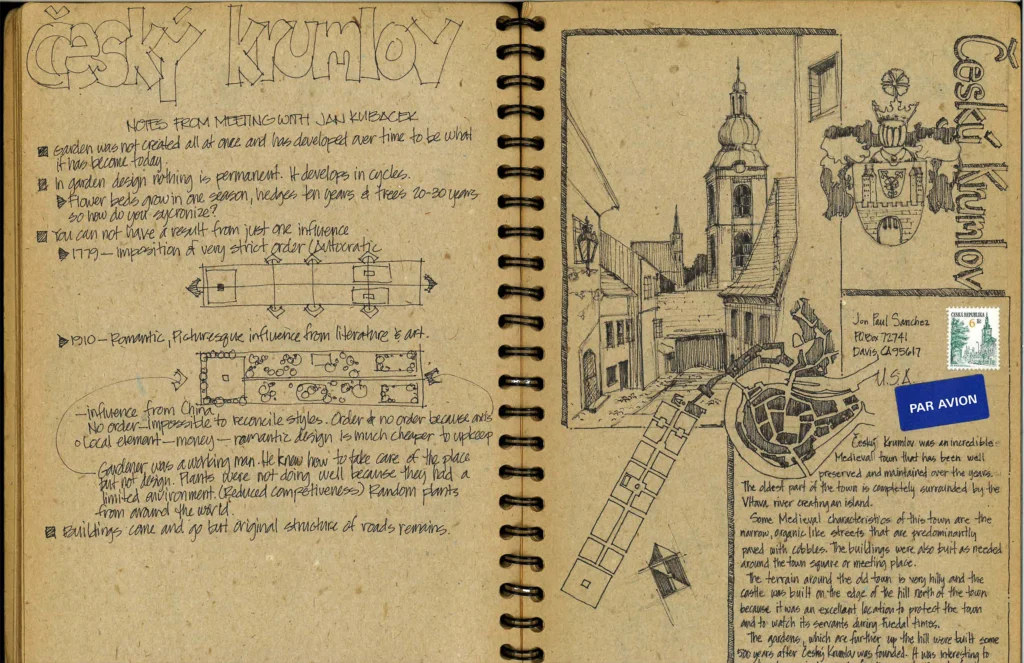 český krumlov
NOTES FROM MEETING WITH JAN KUBACEK
Garden was not created all at once and has developed over time to be what
it has become today.
In garden design nothing is permanent. It develops in cycles.
Flower beds grow in one season, hedges ten years & trees 20-30 years
so how do you sycronize?
You can not have a result from just one influence
1779 - Imposition of very strict order (Autocratic
1910 - Romantic, Picturesque influence from literature & art.
influence from China
No order - impossible to reconcile styles. Order & no order because axis
Local element - money - romantic design is much cheaper to upkeep
Gardener was a working man. He knew how to take care of the place
but not design. Plants were not doing well because they had a
limited environment. (Reduced competiveness) Random plants
from around the world.
Buildings come and go but original structure of roads remains.
Český Krumlov
Jon Paul Sanchez
PO Box 72741
Davis, CA 95617
U.S.A.
ČESKÁ REPUBLIKA
6 Kč
PAR AVION
Český Krumlov was an incredible
Medieval town that has been well
preserved and maintained over the years.
The oldest part of the town is completely surrounded by the
Vltava river creating an island.
Some Medieval characteristics of this town are the
narrow, organic like streets that are predominantly
paved with cobbles. The buildings were also built as needed
around the town square or meeting place.
The terrain around the old town is very hilly and the
castle was built on the edge of the hill north of the town
because it was an excellant location to protect the town
and to watch its servants during fuedal times.
The gardens, which are further up the hill were built some
500 years after Český Krumlov was founded. It was interesting to